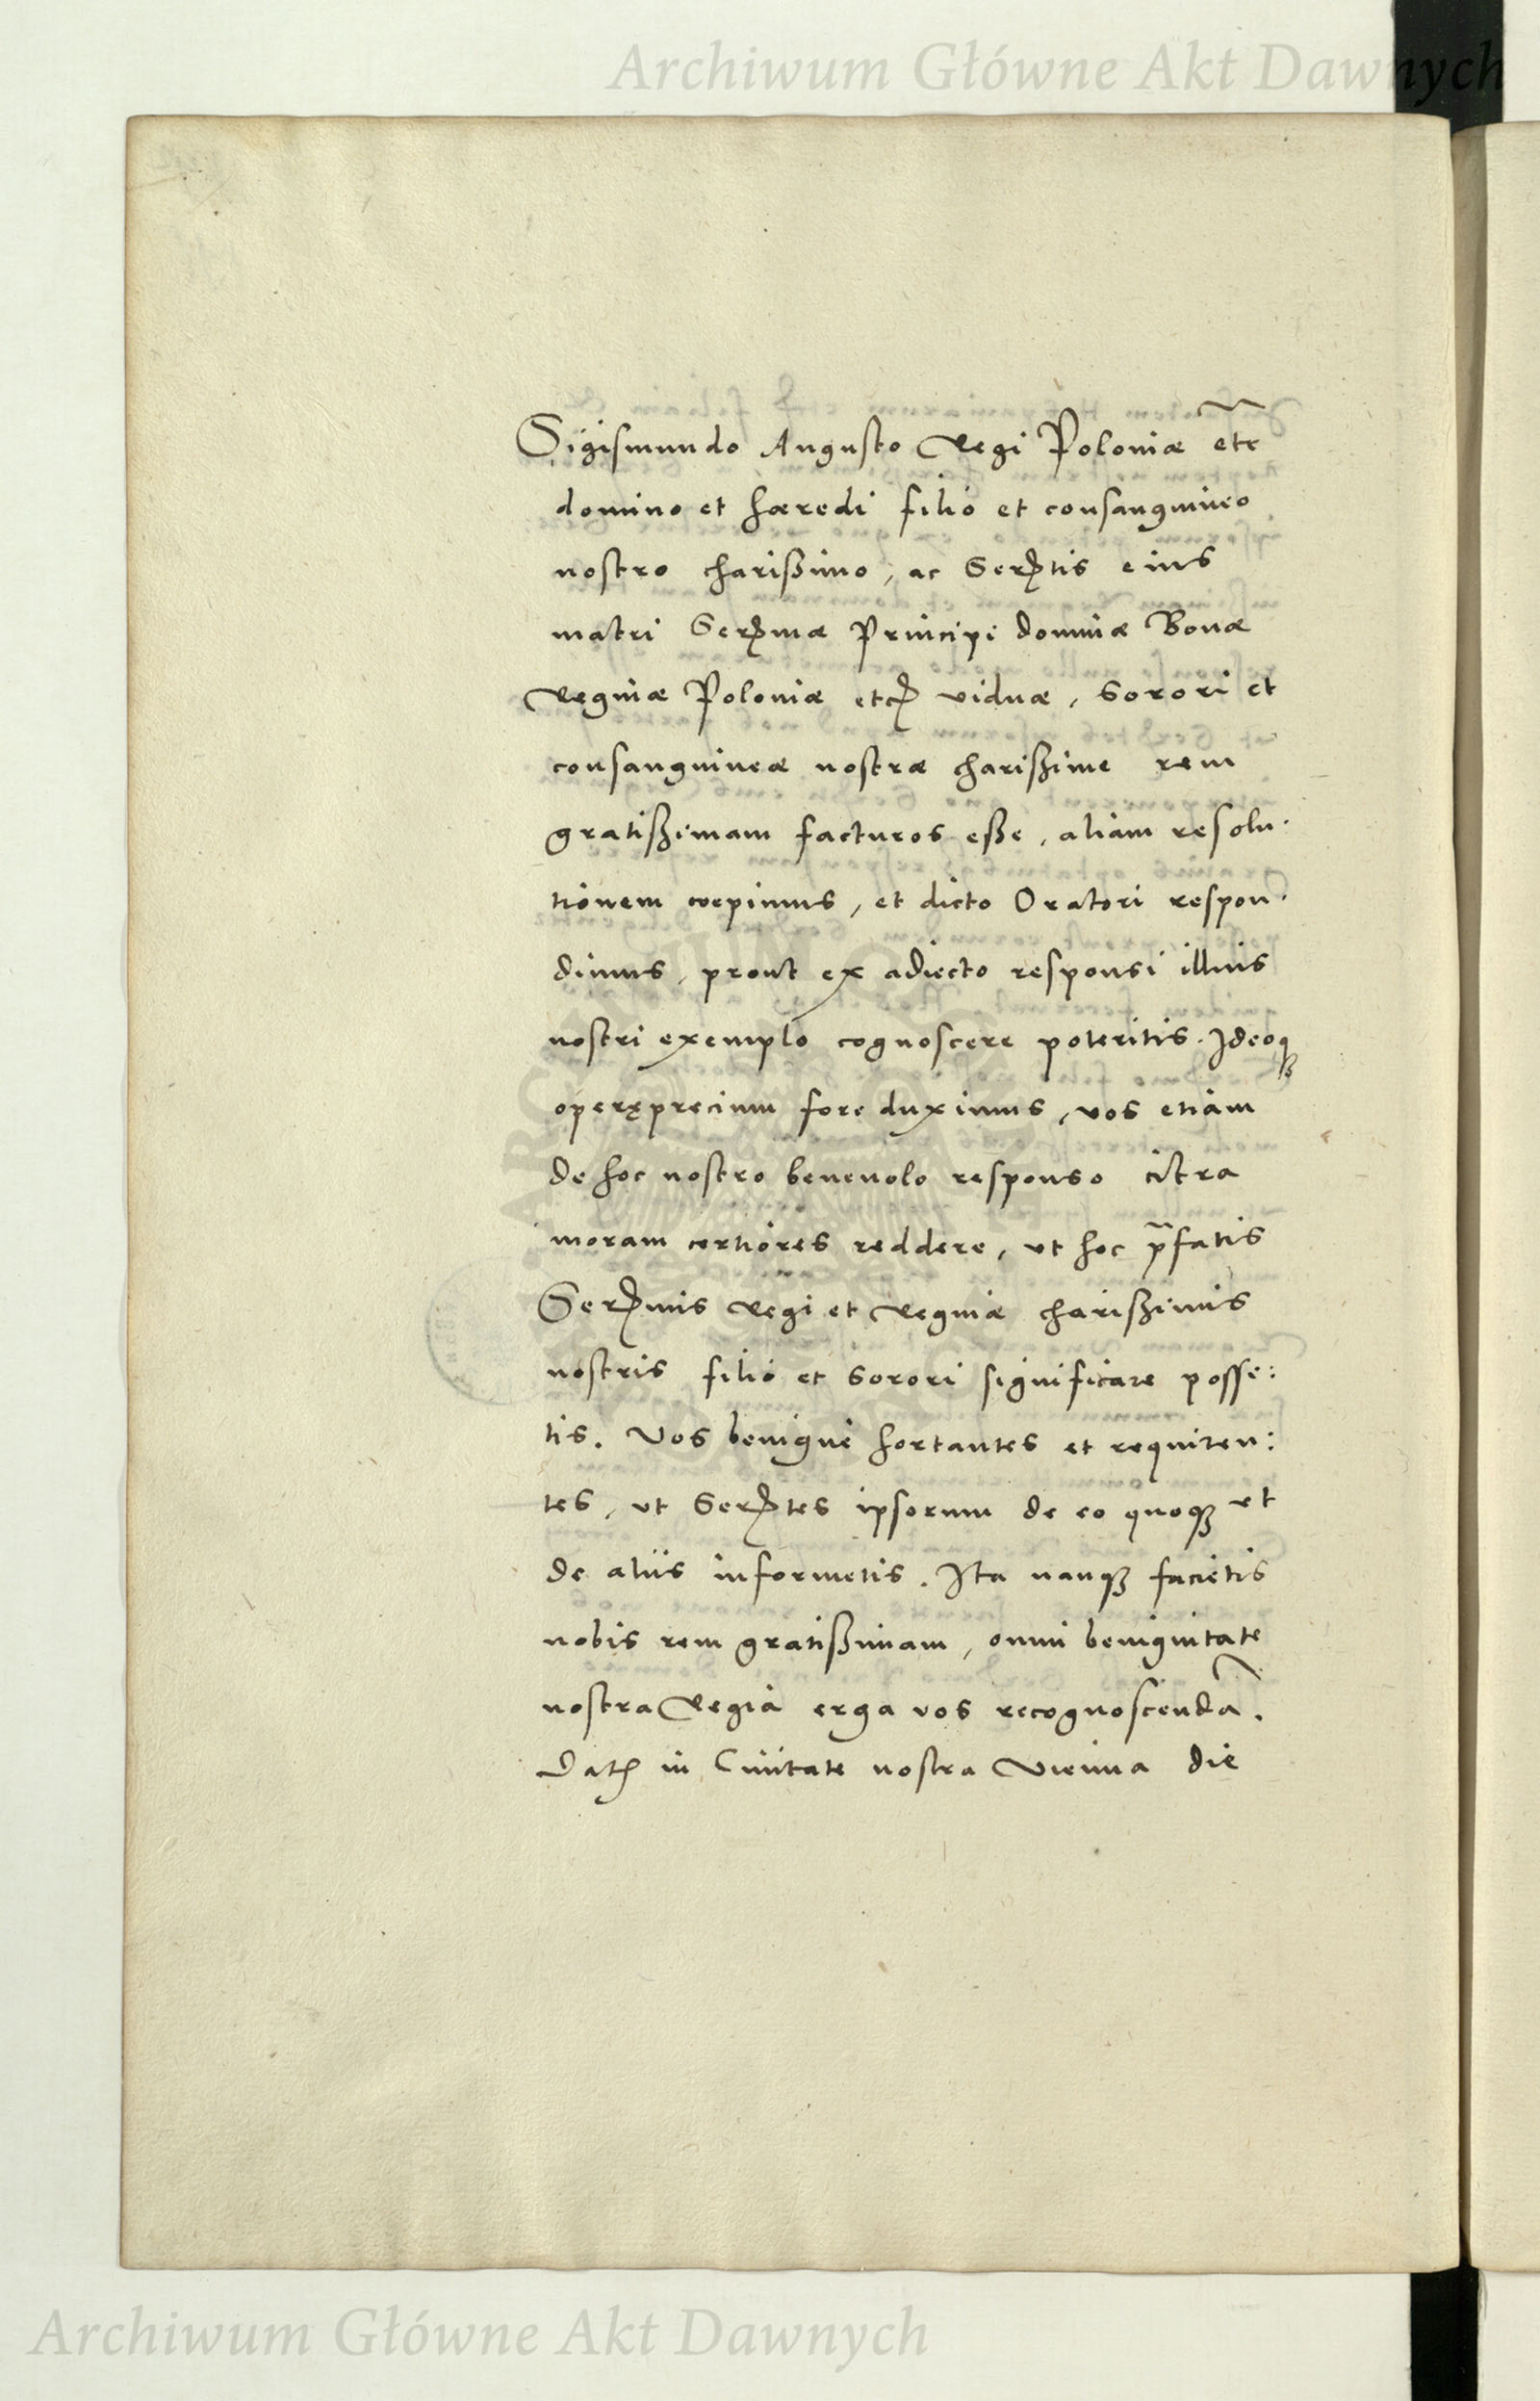 Archiwum Główne Akt Dawnych
Sigismundo Augusto Regi Poloniæ etc̃
domino et hæredi filio et consanguineo
nostro charißimo, ac Serꝑtis eius
matri Serꝑmæ Principi dominæ Bonæ
Reginæ Poloniæ etcꝑ viduæ, Sorori et
consanguineæ nostræ charißime rem
gratißimam facturos eße, aliam resolu-
tionem cœpimus, et dicto Oratori respon-
dimus, prout ex adiecto responsi illius
nostri exemplo cognoscere poteritis. Ideoqꝫ
operęprecium fore duximus, vos etiam
de hoc nostro benevolo responso citra
moram certiores reddere, ut hoc p̃fatis
Serꝑmis Regi et Reginæ charißimis
nostris filio et Sorori significare posse:
tis. Vos benigne hortantes et requiren:
tes, ut Serꝑtes ipsorum de eo quoqꝫ et
de aliis informetis. Ita nanqꝫ facietis
nobis rem gratißimam, omni benignitate
nostra Regia erga vos recognoscendã.
Datꝭ in Civitate nostra Vienna die
Archiwum Główne Akt Dawnych